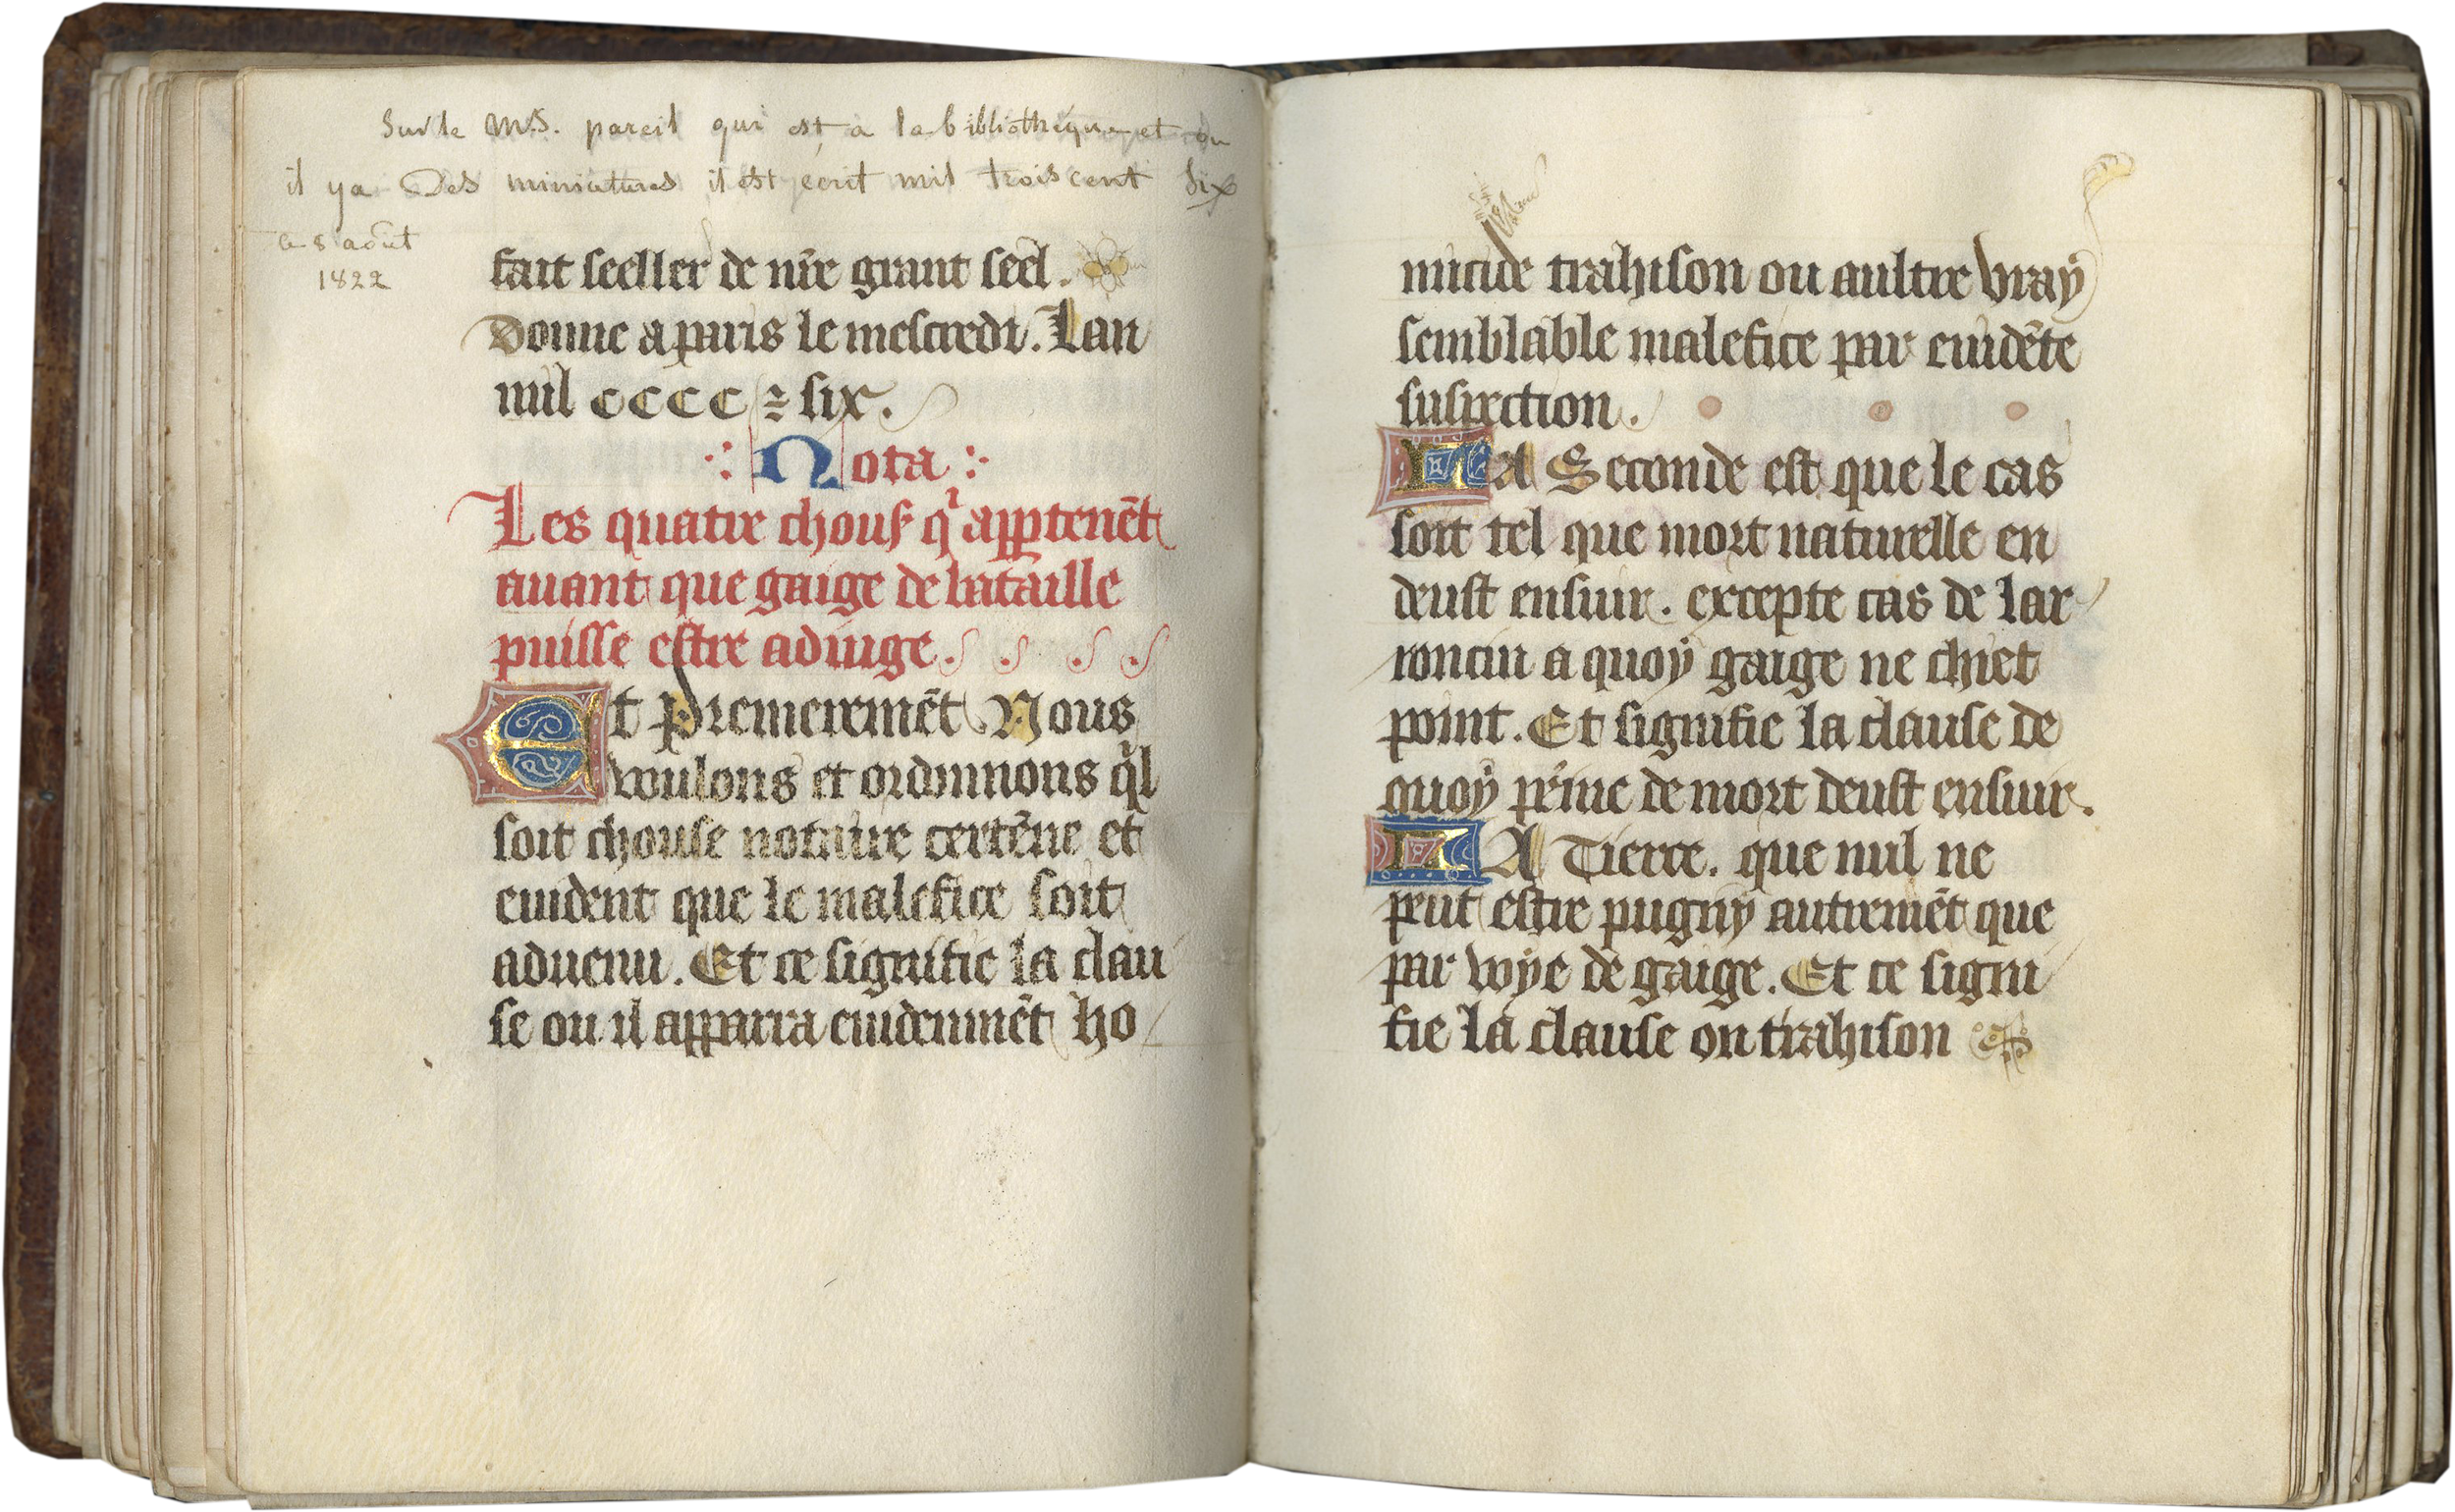 Sur le M.S. pareil qui est a la bibliothéque et ou
il ya Des miniatures il est écrit mil trois cent Six
ce 8 août
1822
fait seeller de nr̃e grant seel.
Donne a paris le mescredi. Lan
mil cccc ⁊ six.
Nota
Les quatre chouses q' apptenẽt
auant que gaige de bataille
puisse estre adiuge.
Et Premieremẽt Nous
voulons et ordonnons q'l
soit chouse notoire certẽne et
euident que le malefice soit
aduenu. Et ce signifie la clau
se ou il apparra euidenmẽt ho
micide trahison ou aultre vraÿ
semblable malefice par euidẽte
suspection.
LA Seconde est que le cas
soit tel que mort naturelle en
deust ensuiur. excepte cas de lar
roncin a quoÿ gaige ne chiet
point. Et signifie la clause de
quoÿ peine de mort deust ensuiur.
LA Tierce. que nul ne
peut estre pugnÿ autremẽt que
par voÿe de gaige. Et ce signi
fie la clause on trahison